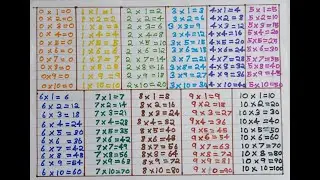 0 x 1=0
0 x 2=0
0 x 3=0
0 x 4=0
0 x 5=0
0 x 6=0
0 x 7=0
0 x 8=0
0 x 9=0
0 x 10=0
1 x 1=1
1 x 2=2
1 x 3=3
1 x 4=4
1 x 5=5
1 x 6=6
1 x 7=7
1 x 8=8
1 x 9=9
1 x 10=10
2 x 1=2
2 x 2=4
2 x 3=6
2 x 4=8
2 x 5=10
2 x 6=12
2 x 7=14
2 x 8=16
2 x 9=18
2 x 10=20
3 x 1=3
3 x 2=6
3 x 3=9
3 x 4=12
3 x 5=15
3 x 6=18
3 x 7=21
3 x 8=24
3 x 9=27
3 x 10=30
4 x 1=4
4 x 2=8
4 x 3=12
4 x 4=16
4 x 5=20
4 x 6=24
4 x 7=28
4 x 8=32
4 x 9=36
4 x 10=40
5 x 1=5
5 x 2=10
5 x 3=15
5 x 4=20
5 x 5=25
5 x 6=30
5 x 7=35
5 x 8=40
5 x 9=45
5 x 10=50
6 x 1= 6
6 x 2= 12
6 x 3= 18
6 x 4= 24
6 x 5= 30
6 x 6= 36
6 x 7= 42
6 x 8= 48
6 x 9= 54
6 x 10= 60
7 x 1=7
7 x 2=14
7 x 3=21
7 x 4=28
7 x 5=35
7 x 6=42
7 x 7=49
7 x 8=56
7 x 9=63
7 x 10=70
8 x 1= 8
8 x 2= 16
8 x 3= 24
8 x 4= 32
8 x 5= 40
8 x 6= 48
8 x 7= 56
8 x 8= 64
8 x 9= 72
8 x 10= 80
9 x 1= 9
9 x 2= 18
9 x 3= 27
9 x 4= 36
9 x 5= 45
9 x 6= 54
9 x 7= 63
9 x 8= 72
9 x 9= 81
9 x 10= 90
10 x 1=10
10 x 2= 20
10 x 3= 30
10 x 4= 40
10 x 5= 50
10 x 6= 60
10 x 7= 70
10 x 8= 80
10 x 9= 90
10 x 10=100